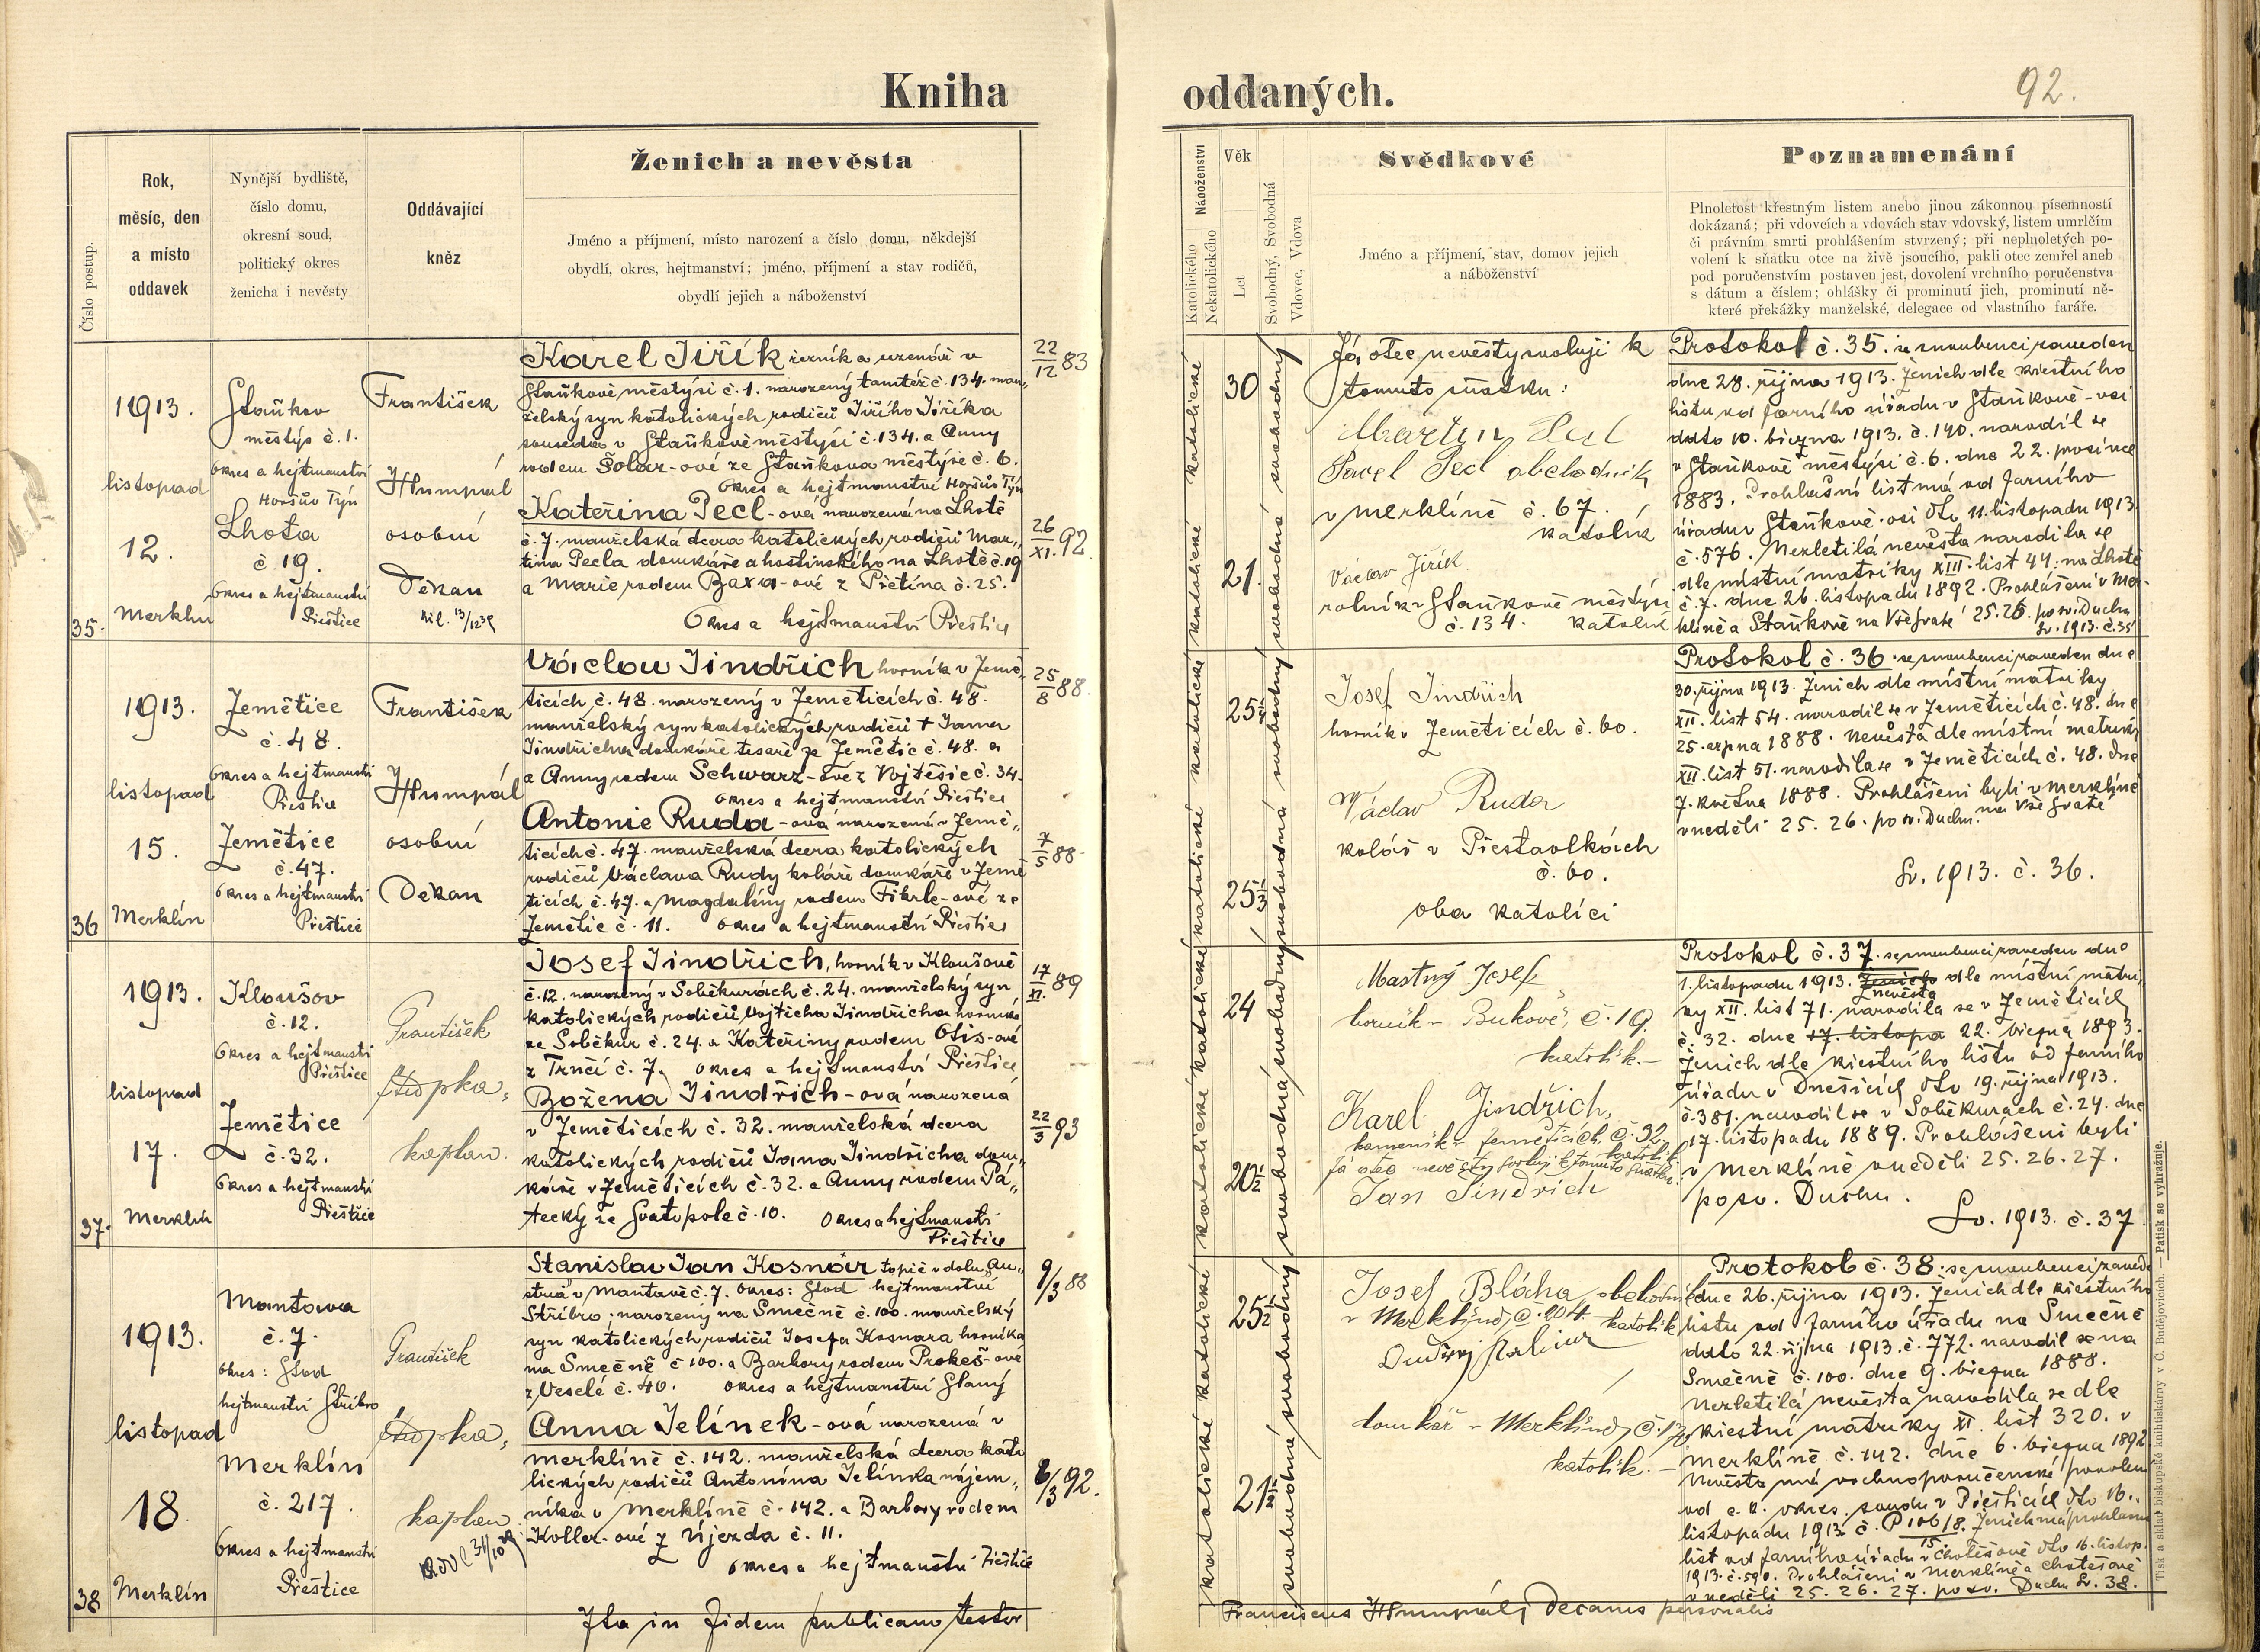 Kniha
oddaných.
92.
Číslo postup.
Rok,
měsíc, den
a místo
oddavek
Nynější bydliště,
číslo domu,
okresní soud,
politický okres
ženicha i nevěsty
Oddávající
kněz
Ženich a nevěsta
Jméno a příjmení, místo narození a číslo domu, někdejší
obydlí, okres, hejtmanství; jméno, příjmení a stav rodičů,
obydlí jejich a náboženství
Náboženství
Katolického
Nekatolického
Věk
Let
Svobodný, Svobodná
Vdovec, Vdova
Svědkové
Jméno a příjmení, stav, domov jejich
a náboženství
Poznamenání
Plnoletost křestným listem anebo jinou zákonnou písemností
dokázaná; při vdovcích a vdovách stav vdovský, listem umrlčím
či právním smrti prohlášením stvrzený; při neplnoletých po-
volení k sňatku otce na živě jsoucího, pakli otec zemřel aneb
pod poručenstvím postaven jest, dovolení vrchního poručenstva
s dátum a číslem; ohlášky či prominutí jich, prominutí ně-
které překážky manželské, delegace od vlastního faráře.
35.
1913.
listopad
12.
Merklín
Staňkov
městýs č. 1.
okres a hejtmanství
Horšův Týn
Lhota
č. 19.
Okres a hejtmanství
Přeštice
František
Humpál
osobní
Děkan
Karel Jiřík řezník a uzenář v
Staňkově městýsi č. 1. narozený tamtéž č. 134. man-
želský syn katolických rodičů Jiřího Jiříka
souseda v Staňkově městýsi č. 134. a Anny
rodem Šolar-ové ze Staňkova městýse č. 6.
Okres a hejtmanství Horšův Týn
22/12 83
Kateřina Pecl-ová narozená na Lhotě
č. 7. manželská dcera katolických rodičů Mar-
tina Pecla domkáře a hostinského na Lhotě č. 19
a Marie rodem Baxa-ové z Ptětína č. 25.
Okres a hejtmanství Přeštice
26/XI. 92
30
21.
Já otec nevěsty svoluji k
tomuto sňatku:
Martin Pecl
Pavel Pecl obchodník
v Merklíně č. 67.
katolík
Václav Jiřík
rolník v Staňkově městýsi
č. 134. katolík
Protokol č. 35. se snoubenci zaveden
dne 28. října 1913. Ženich dle křestního
listu od farního úřadu v Staňkově-vsi
dato 10. března 1913. č. 140. narodil se
v Staňkově městýsi č. 6. dne 22. prosince
1883. Prohlašní list má od farního
úřadu v Staňkově-vsi dto 11. listopadu 1913.
č. 576. Nezletilá nevěsta narodila se
dle místní matriky XIII. list 44. na Lhotě
č. 7. dne 26. listopadu 1892. Prohlášení v Mer-
klíně a Staňkově na Vše svaté 25. 26. po sv. Duchu
Sv. 1913. č. 35
36
1913.
listopad
15.
Merklín
Zemětice
č. 48.
Okres a hejtmanství
Přeštice
Zemětice
č. 47.
Okres a hejtmanství
Přeštice
František
Humpál
osobní
Děkan
Václav Jindřich horník v Země-
ticích č. 48. narozený v Zeměticích č. 48.
manželský syn katolických rodičů † Jana
Jindřicha domkáře tesaře ze Zemětic č. 48. a
a Anny rodem Schwarz-ové z Vojtěšic č. 34.
okres a hejtmanství Přeštice
25/8 88.
Antonie Ruda-ová narozená v Země-
ticích č. 47. manželská dcera katolických
rodičů Václava Rudy koláře domkáře v Země
ticích č. 47. a Magdalíny rodem Fikrle-ové ze
Zemětic č. 11. okres a hejtmanství Přeštice
7/5 88
25 1/4
25 1/3
Josef Jindřich
horník v Zeměticích č. 60.
Václav Ruda
kolář v Přestavlkách
č. 60.
oba katolíci
Protokol č. 36. se snoubenci zaveden dne
30. října 1913. Ženich dle místní matriky
XII. list 54. narodil se v Zeměticích č. 48. dne
25. srpna 1888. Nevěsta dle místní matriky
XII. list 51. narodila se v Zeměticích č. 48. dne
7. května 1888. Prohlášeni byli v Merklíně
v neděli 25. 26. po sv. Duchu. na Vše svaté
Sv. 1913. č. 36.
37.
1913.
listopad
17.
Merklín
Kloušov
č. 12.
Okres a hejtmanství
Přeštice
Zemětice
č. 32.
Okres a hejtmanství
Přeštice
František
kaplan.
Josef Jindřich, horník v Kloušově
č. 12. narozený v Soběkurách č. 24. manželský syn
katolických rodičů Vojtěcha Jindřicha horníka
ze Soběkur č. 24. a Kateřiny rodem Otis-ové
z Trnčí č. 7. okres a hejtmanství Přeštice
17/XI. 89
Božena Jindřich-ová narozená
v Zeměticích č. 32. manželská dcera
katolických rodičů Jana Jindřicha dom-
káře v Zeměticích č. 32. a Anny rodem Pá-
tecký ze Svatopole č. 10. Okres a hejtmanství
Přeštice
22/3 93
24
20 1/2
Mastný Josef
horník v Bukově, č. 19.
katolík.
Karel Jindřich,
kameník v Zeměticích č. 32.
katolík
Já otec nevěsty svoluji k tomuto sňatku.
Jan Jindřich
Protokol č. 37. se snoubenci zaveden dne
1. listopadu 1913. Ženich nevěsta dle místní matri-
ky XII. list 71. narodila se v Zeměticích
č. 32. dne 17. listopa 22. března 1893.
Ženich dle křestního listu od farního
úřadu v Dnešicích dto 19. října 1913.
č. 381. narodil se v Soběkurách č. 24. dne
17. listopadu 1889. Prohlášeni byli
v Merklíně v neděli 25. 26. 27.
po sv. Duchu.
Sv. 1913. č. 37
38
1913.
listopad
18.
Merklín
Mantova
č. 7.
okres: Stod
hejtmanství Stříbro
Merklín
č. 217.
Okres a hejtmanství
Přeštice
František
kaplan
Stanislav Jan Kosnár topič v dolu „Au-
stria“ v Mantově č. 7. okres: Stod hejtmanství
Stříbro; narozený na Smečně č. 100. manželský
syn katolických rodičů Josefa Kosnara horníka
na Smečně č. 100. a Barbory rodem Prokeš-ové
z Veselé č. 40. okres a hejtmanství Slaný
9/3 88
Anna Jelínek-ová narozená v
Merklíně č. 142. manželská dcera kato
lických rodičů Antonína Jelínka nájem-
níka v Merklíně č. 142. a Barbory rodem
Koller-ové z Újezda č. 11.
okres a hejtmanství Přeštice
6/3 92.
25 1/2
21
Josef Bláha, obchodník
v Merklíně, č. 204. katolík
domkář v Merklíně, č.
katolík.
Protokol č. 38. se snoubenci zaved.
dne 26. října 1913. Ženich dle křestního
listu od farního úřadu na Smečně
dato 22. října 1913. č. 772. narodil se na
Smečně č. 100. dne 9. března 1888.
Nezletilá nevěsta narodila se dle
křestní matriky XI. list 320. v
Merklíně č. 142. dne 6. března 1892.
Nevěsta má vrchnoporučenské povolení
od c. k. okres. soudu v Přešticích dto 16.
listopadu 1913 č. P 106/8. Ženich má prohlašní
list od farního úřadu v Chotěšově dto 16. listop.
1913. č. 590. Prohlášeni v Merklíně a Chotěšově
v neděli 25. 26. 27. po sv. Duchu Sv. 38.
Ita in fidem publicam testor
Franciscus Humpál, Decanus personalis
Tisk a sklad biskupské knihtiskárny v Č. Budějovicích. — Patisk se vyhražuje.